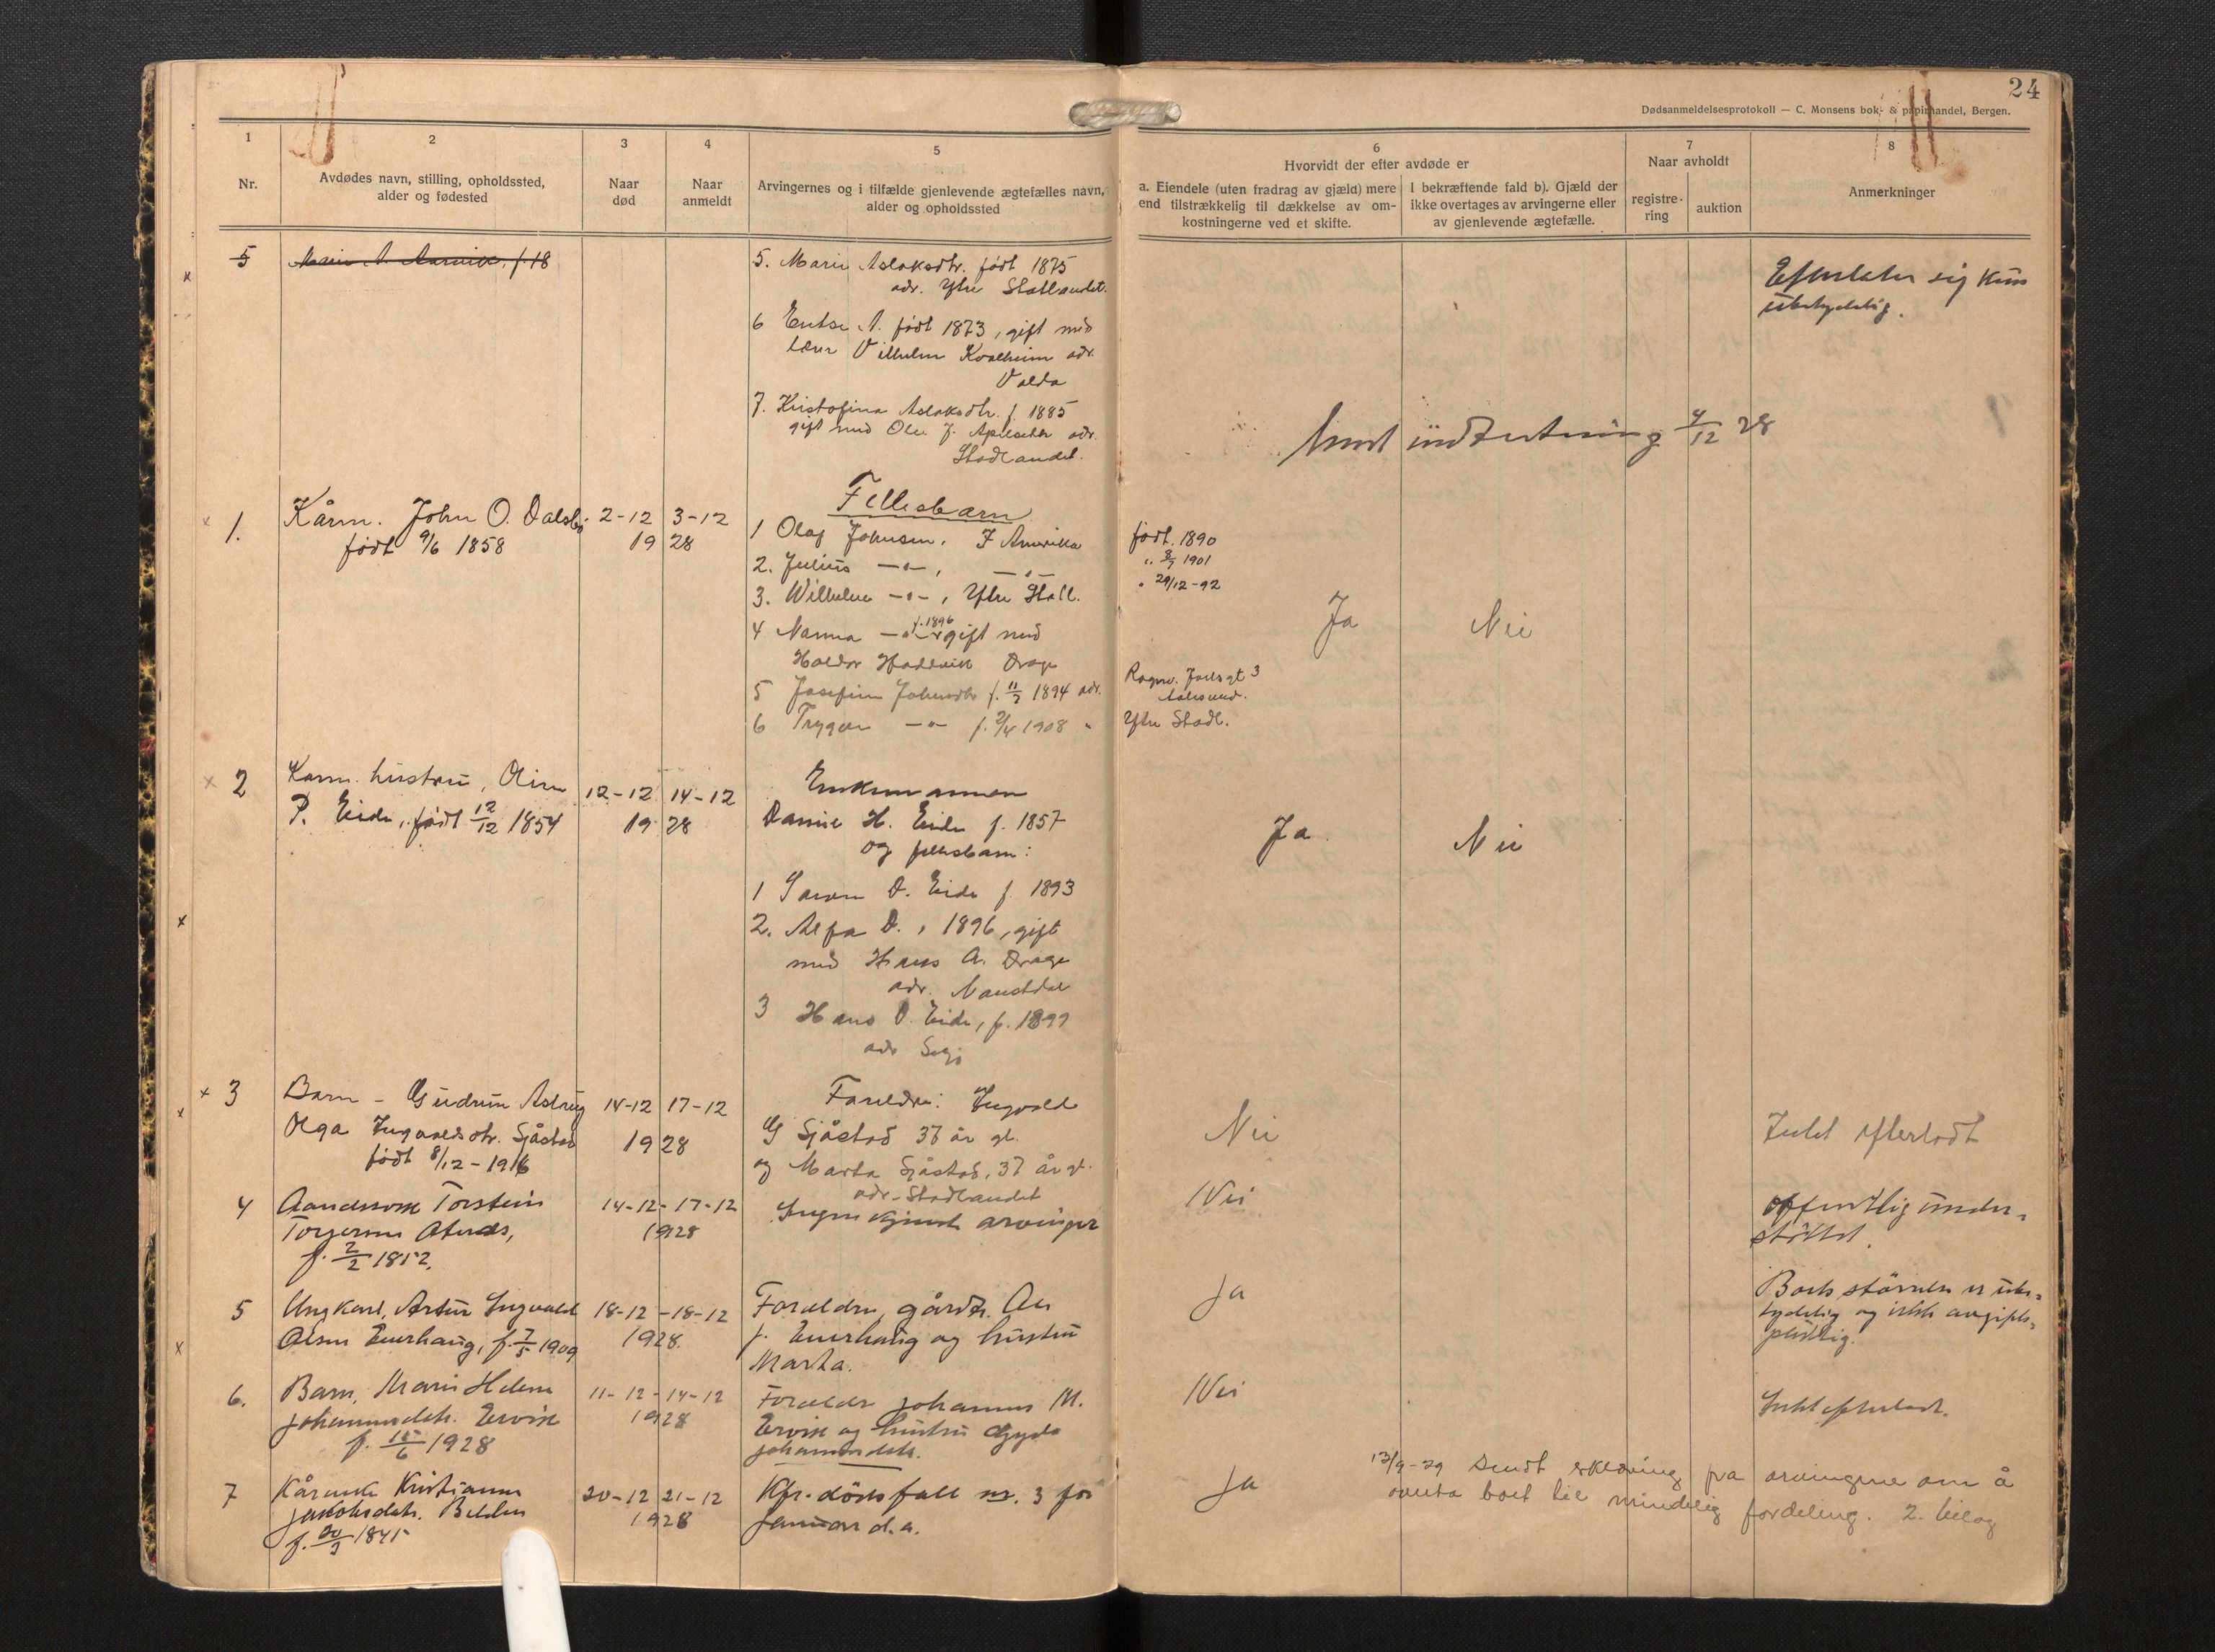 24
Dødsanmeldelsesprotokoll — C. Monsens bok- & papirhandel, Bergen.
1
2
3
4
5
6
7
8
Nr.
Avdødes navn, stilling, opholdssted,
alder og fødested
Naar
død
Naar
anmeldt
Arvingernes og i tilfælde gjenlevende ægtefælles navn,
alder og opholdssted
Hvorvidt der efter avdøde er
a. Eiendele (uten fradrag av gjæld) mere
end tilstrækkelig til dækkelse av om-
kostningerne ved et skifte.
I bekræftende fald b). Gjæld der
ikke overtages av arvingerne eller
av gjenlevende ægtefælle.
Naar avholdt
registre-
ring
auktion
Anmerkninger
5
5. Marie Aslaksdtr. født 1875
adr. Ytre Statlandet.
Efterlater sig kun
ubetydelig.
6 A. født 1873, gift med
Vilhelm Kvalheim adr.
Volda
7. Kristofina Aslaksdtr. f. 1885
gift med Ole J. adr.
Stadlandet.
Sendt indberetning 4/12 28
1. Kårm. John O. Dalsbø
født 9/6 1858
2-12 3-12
19 28
Fellesbarn
1 Olaf Johnsen. I Amerika
født. 1890
2. Julius —"—, —"—
" 8/7 1901
3. Wilhelm —"—, Ytre Statl.
" 29/12-92
4 Nanna —"— f. 1896 gift med
Haldor Hoddevik Drage
Ja Nei
5 Josefine Johnsdtr f. 11/7 1894 adr.
Ragnv. Jarlsgt 3
Aalesund.
6 Trygve —"— f. 2/4 1908 "
Ytre Stadl.
2 Kårm. hustru, Oline
P. Eide, født 12/12 1854
12-12 14-12
19 28
Enkemannen
Daniel H. Eide f. 1857
og fellesbarn:
Ja. Nei
1 Søren D. Eide f. 1893
2. Alfa D. , 1896, gift
med Hans A. Drage
adr. Naustdal
3 Hans D. Eide, f. 1899
adr Selje
3 Barn - Gudrun Astrug
Olga Ingvaldsdtr. Sjåstad
født 8/12-1916
14-12 17-12
19 28
Foreldre: Ingvald
G Sjåstad 37 år gl.
og Marta Sjåstad, 37 år gl.
adr. Stadlandet
Nei
Intet efterladt
4 Aandssvak Torstein
Torgersen
f. 2/2 1852.
14-12- 17-12
1928
Ingen kjendte arvinger
Nei
offentlig under-
støttet.
5 Ungkarl, Artur Ingvald
Olsen Ewerhaug, f. 7/5 1909
18-12 -18-12
1928.
Foreldre, gårdbr. Ole
J. Ewerhaug og hustru
Marta.
Ja
Boets størrelse er ube-
tydelig og ikke avgifts-
pliktig.
6. Barn, Marie Helene
Johannesdtr. Ervik
f. 15/6 1928
11-12-14-12
1928
Foreldre Johannes M.
Ervik og hustru Gyda
Johannesdtr.
Nei
Intet efterladt.
7 Kårenke Kristianne
Jakobsdtr.
f. 20/3 1845
20-12 21-12
1928
Kfr. dødsfall nr. 3 for
januar d.a.
Ja
13/9-29 Sendt erklæring fra arvingene om å
overta boet til mindelig fordeling. 2. bilag